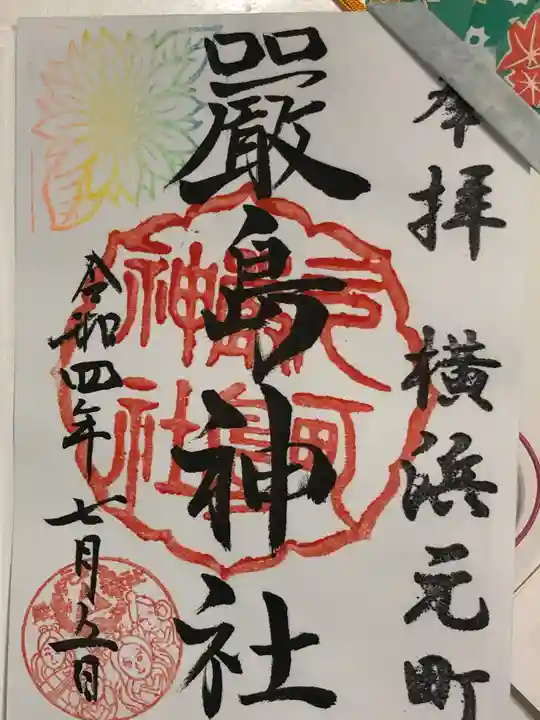 奉拝 横浜元町
嚴島神社
元町嚴島神社
令和四年七月五日